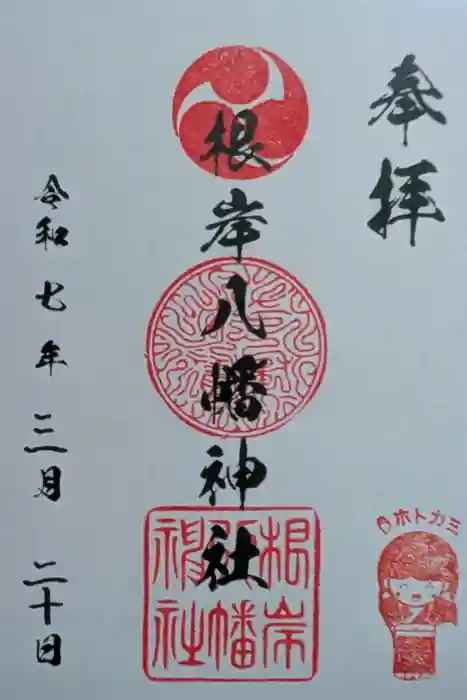 奉拝
根岸八幡神社
令和七年三月二十日
根岸
八幡
神社
ホトカミ